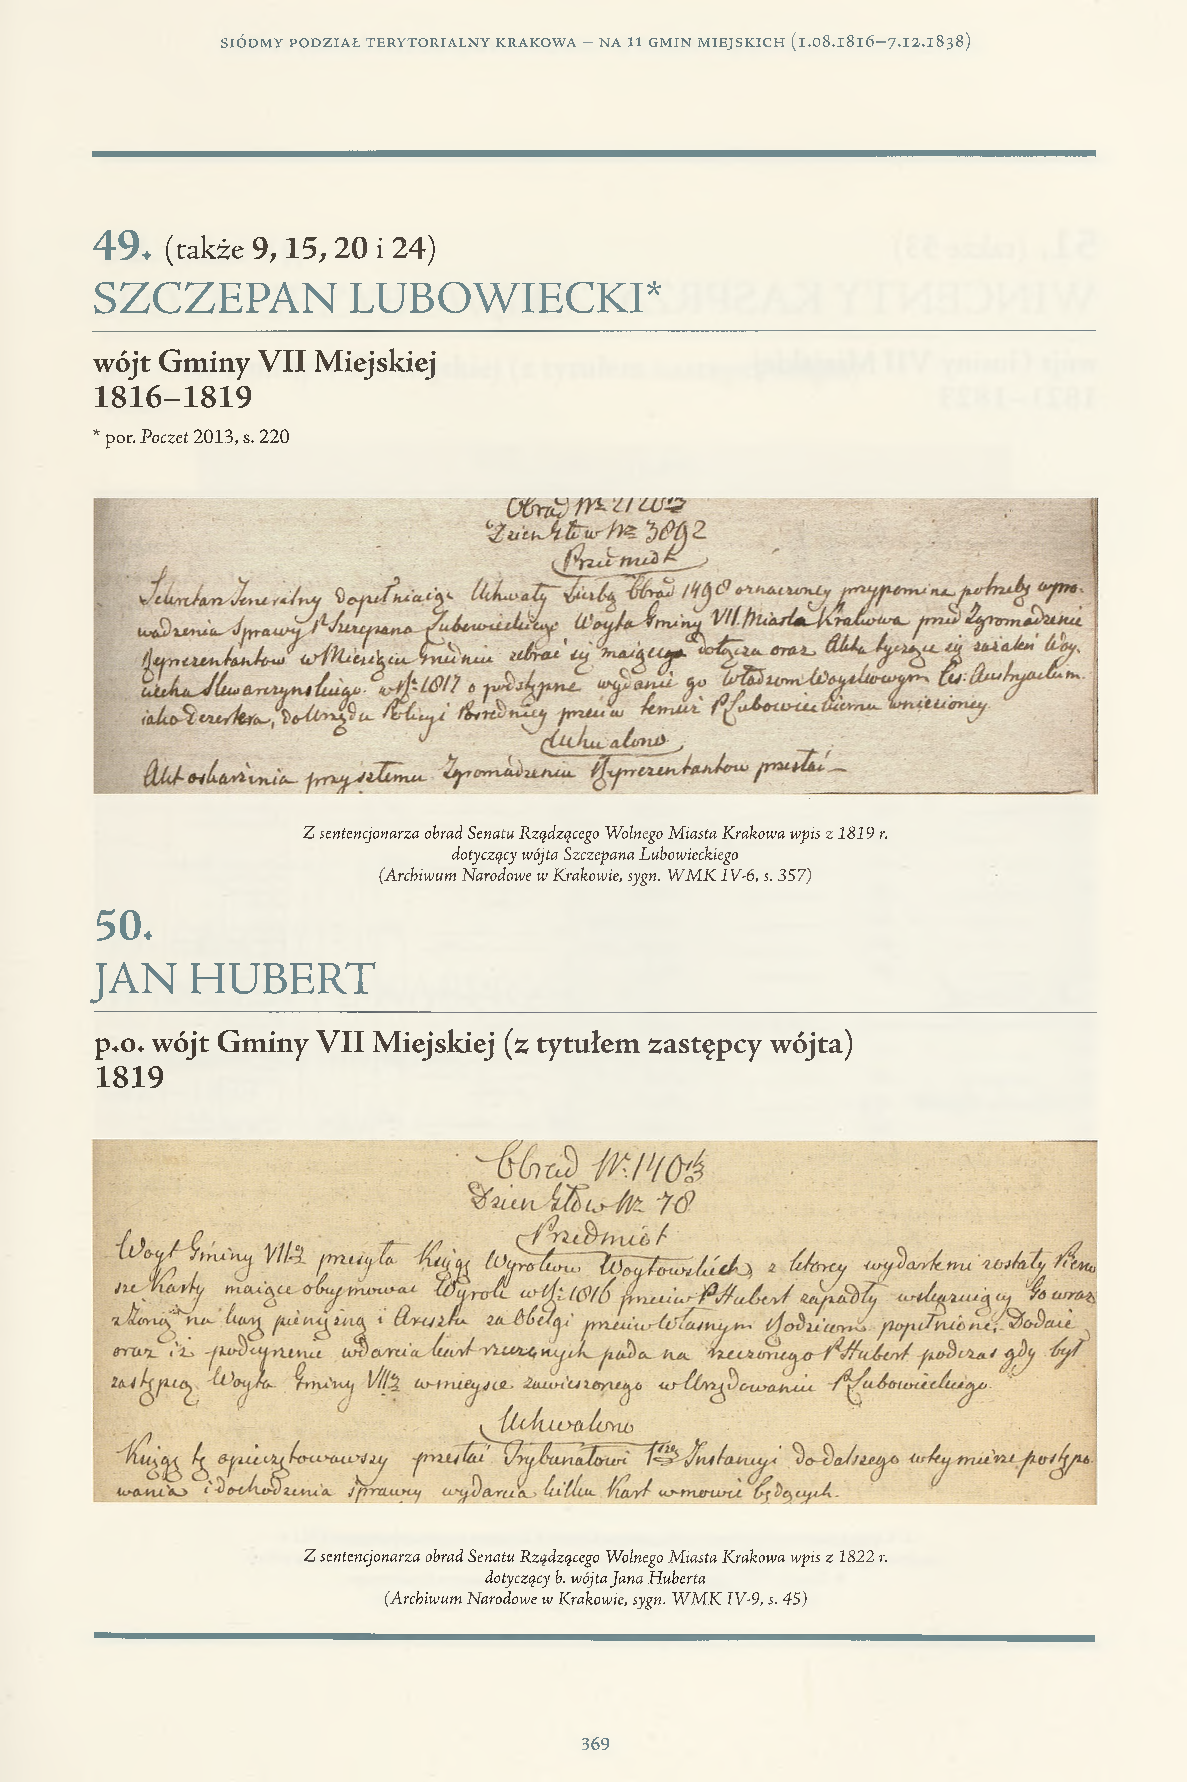 SIÓDMY PODZIAŁ TERYTORIALNY KRAKOWA – NA 11 GMIN MIEJSKICH (1.08.1816–7.12.1838)
49. (także 9, 15, 20 i 24)
SZCZEPAN LUBOWIECKI*
wójt Gminy VII Miejskiej
1816–1819
* por. Poczet 2013, s. 220
Obrad Nr
Dzien Głów Nr 3892
Przedmiot
Sekretarz Jeneralny dopełniaiąc Uchwały Liczbą Obrad 1498 oznaczoney przypomina potrzebę wpro-
wadzenia Sprawy P. Szczepana Lubowieckiego Woyta Gminy VII. Miasta Krakowa przed Zgromadzenie
Reprezentantow w Miesiącu Grudniu zebrać się maiącego dołącza oraz Akta tyczące się zażaleń Woy-
ciecha w R: 1817 o podstępne wydanie go Władzom Woyskowym Ces: Austryackim
iako Dezertera, do Urzędu Policyi Pośredniey przeciw temuż P. Lubowieckiemu wniesioney.
Uchwalono
Akt oskarżenia przyszłemu Zgromadzeniu Reprezentantow przesłać —
Z sentencjonarza obrad Senatu Rządzącego Wolnego Miasta Krakowa wpis z 1819 r.
dotyczący wójta Szczepana Lubowieckiego
(Archiwum Narodowe w Krakowie, sygn. WMK IV-6, s. 357)
50.
JAN HUBERT
p.o. wójt Gminy VII Miejskiej (z tytułem zastępcy wójta)
1819
Obrad Nr. 140
Dzien Głów Nr 78
Przedmiot
Woyt Gminy VII przesyła Księgę Wyrokow Woytowskich, z ktorey wydartemi zostały Pierw
sze Karty maiące obeymować Wyrok w R: 1816 przeciw P. Hubert zapadły wskazuiący Go wraz
z Żoną na karę pieniężną i Aresztu za Obelgi przeciw Własnym Rodzicom popełnione, Dodaie
oraz iż podeyrzenie wdarcia kart rzeczonych pada na rzeczonego P. Hubert podczas gdy był
zastępcą Woyta Gminy VII w mieysce zawieszonego w Urzędowaniu P. Lubowieckiego.
Uchwalono
Księgę tę opieczętowawszy przesłać Trybunałowi Instancyi do dalszego w tey mierze postępo-
wania i dochodzenia sprawcy wydarcia kilku Kart w mowie będących.
Z sentencjonarza obrad Senatu Rządzącego Wolnego Miasta Krakowa wpis z 1822 r.
dotyczący b. wójta Jana Huberta
(Archiwum Narodowe w Krakowie, sygn. WMK IV-9, s. 45)
369